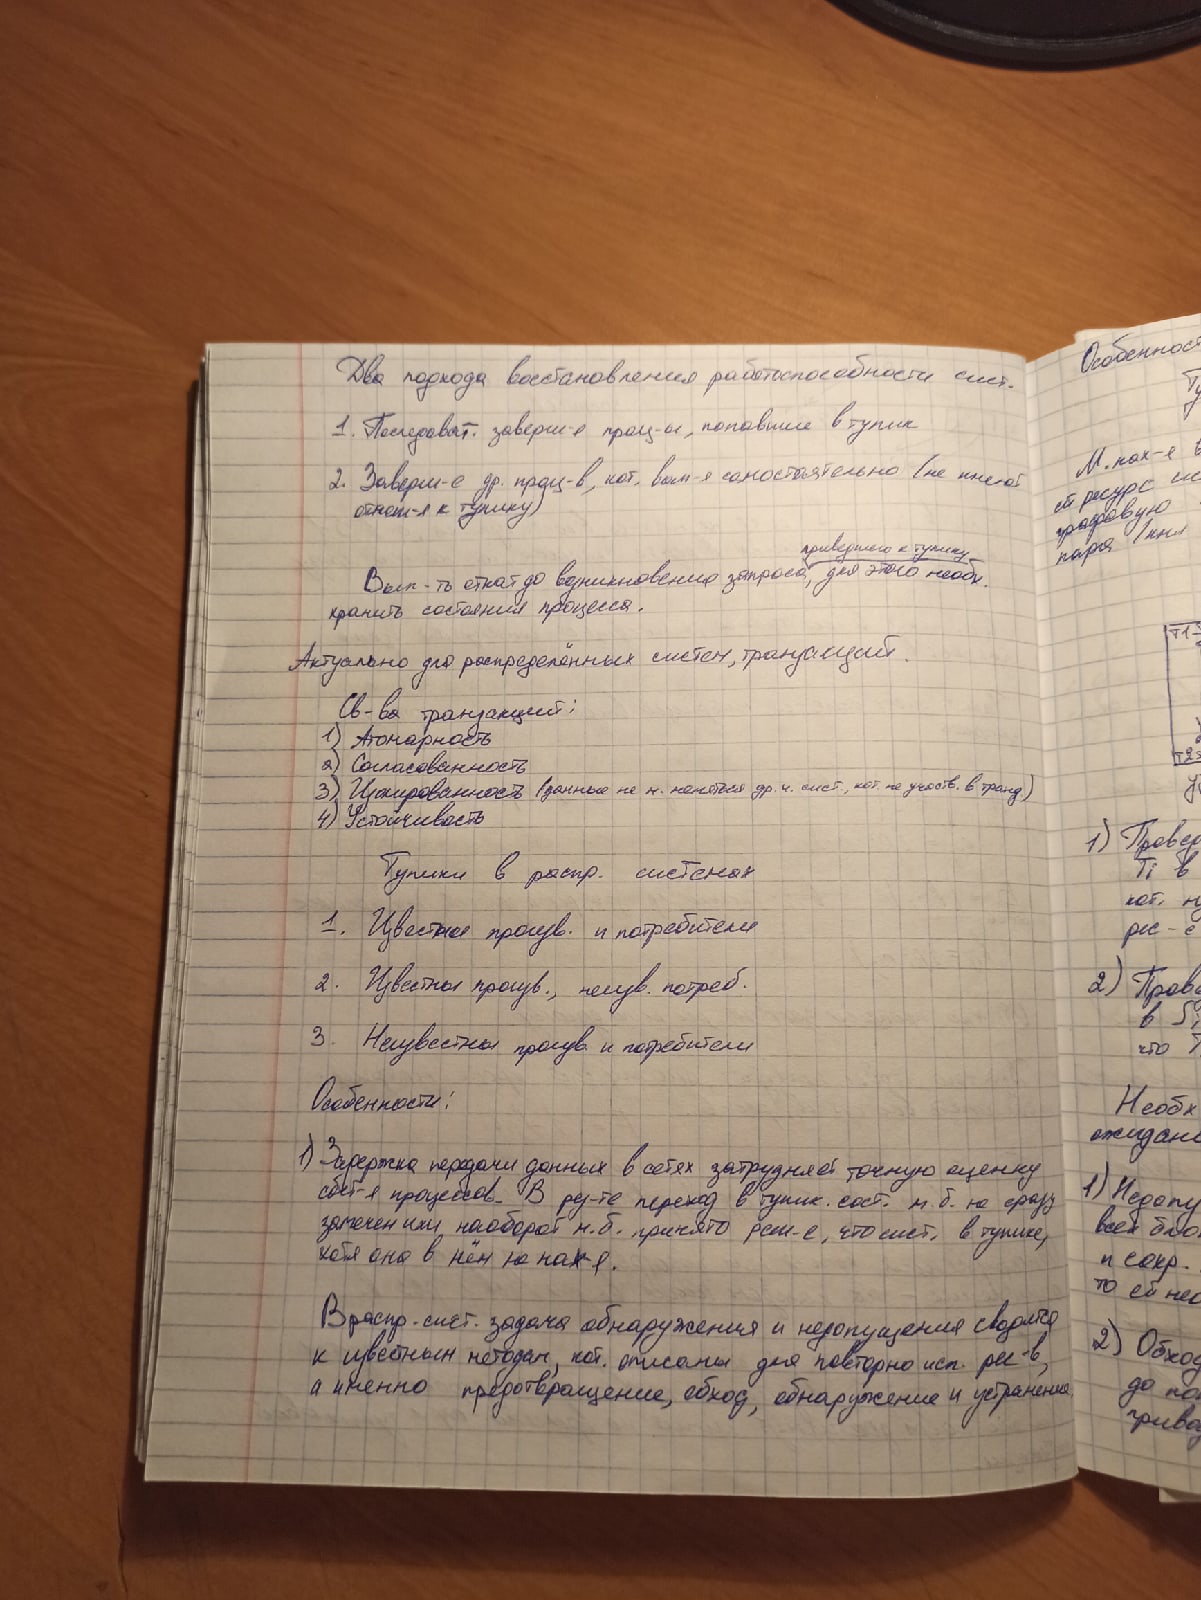 Два подхода восстановления работоспособности сист.
1. Последоват. заверш-е проц-ы, попавшие в тупик
2. Заверш-е др. проц-в, кот. вып-я самостоятельно (не имеют
отнош-я к тупику)
приведшего к тупику
Вып-ть откат до возникновения запроса, для этого необх.
хранить состояния процесса.
Актуально для распределённых систем, транзакций.
Св-ва транзакций:
1) Атомарность
2) Согласованность
3) Изолированность (данные не м. меняться др. ч. сист., кот. не участв. в транз)
4) Устойчивость
Тупики в распр. системах
1. Известные произв. и потребители
2. Известны произв., неизв. потреб.
3. Неизвестны произв. и потребители
Особенности:
1) Задержка передачи данных в сетях затрудняет точную оценку
сост-я процессов. В рез-те переход в тупик. сост. м.б. не сразу
замечен или наоборот м.б. принято реш-е, что сист. в тупике,
хотя она в нём не нах-я.
В распр. сист. задача обнаружения и недопущения сводится
к известным методам, кот. описаны для повторно исп. рес-в,
а именно предотвращение, обход, обнаружение и устранение
Особенност
М. нах-я в
ей ресурс
графовую
пара
T1
T2
1) Провер
Ti в
кот.
рес-е
2) Прове
в
что
Необх
ожидани
1) Недопу
всех бло
п сокр.
то ей
2) Обход
до
привод